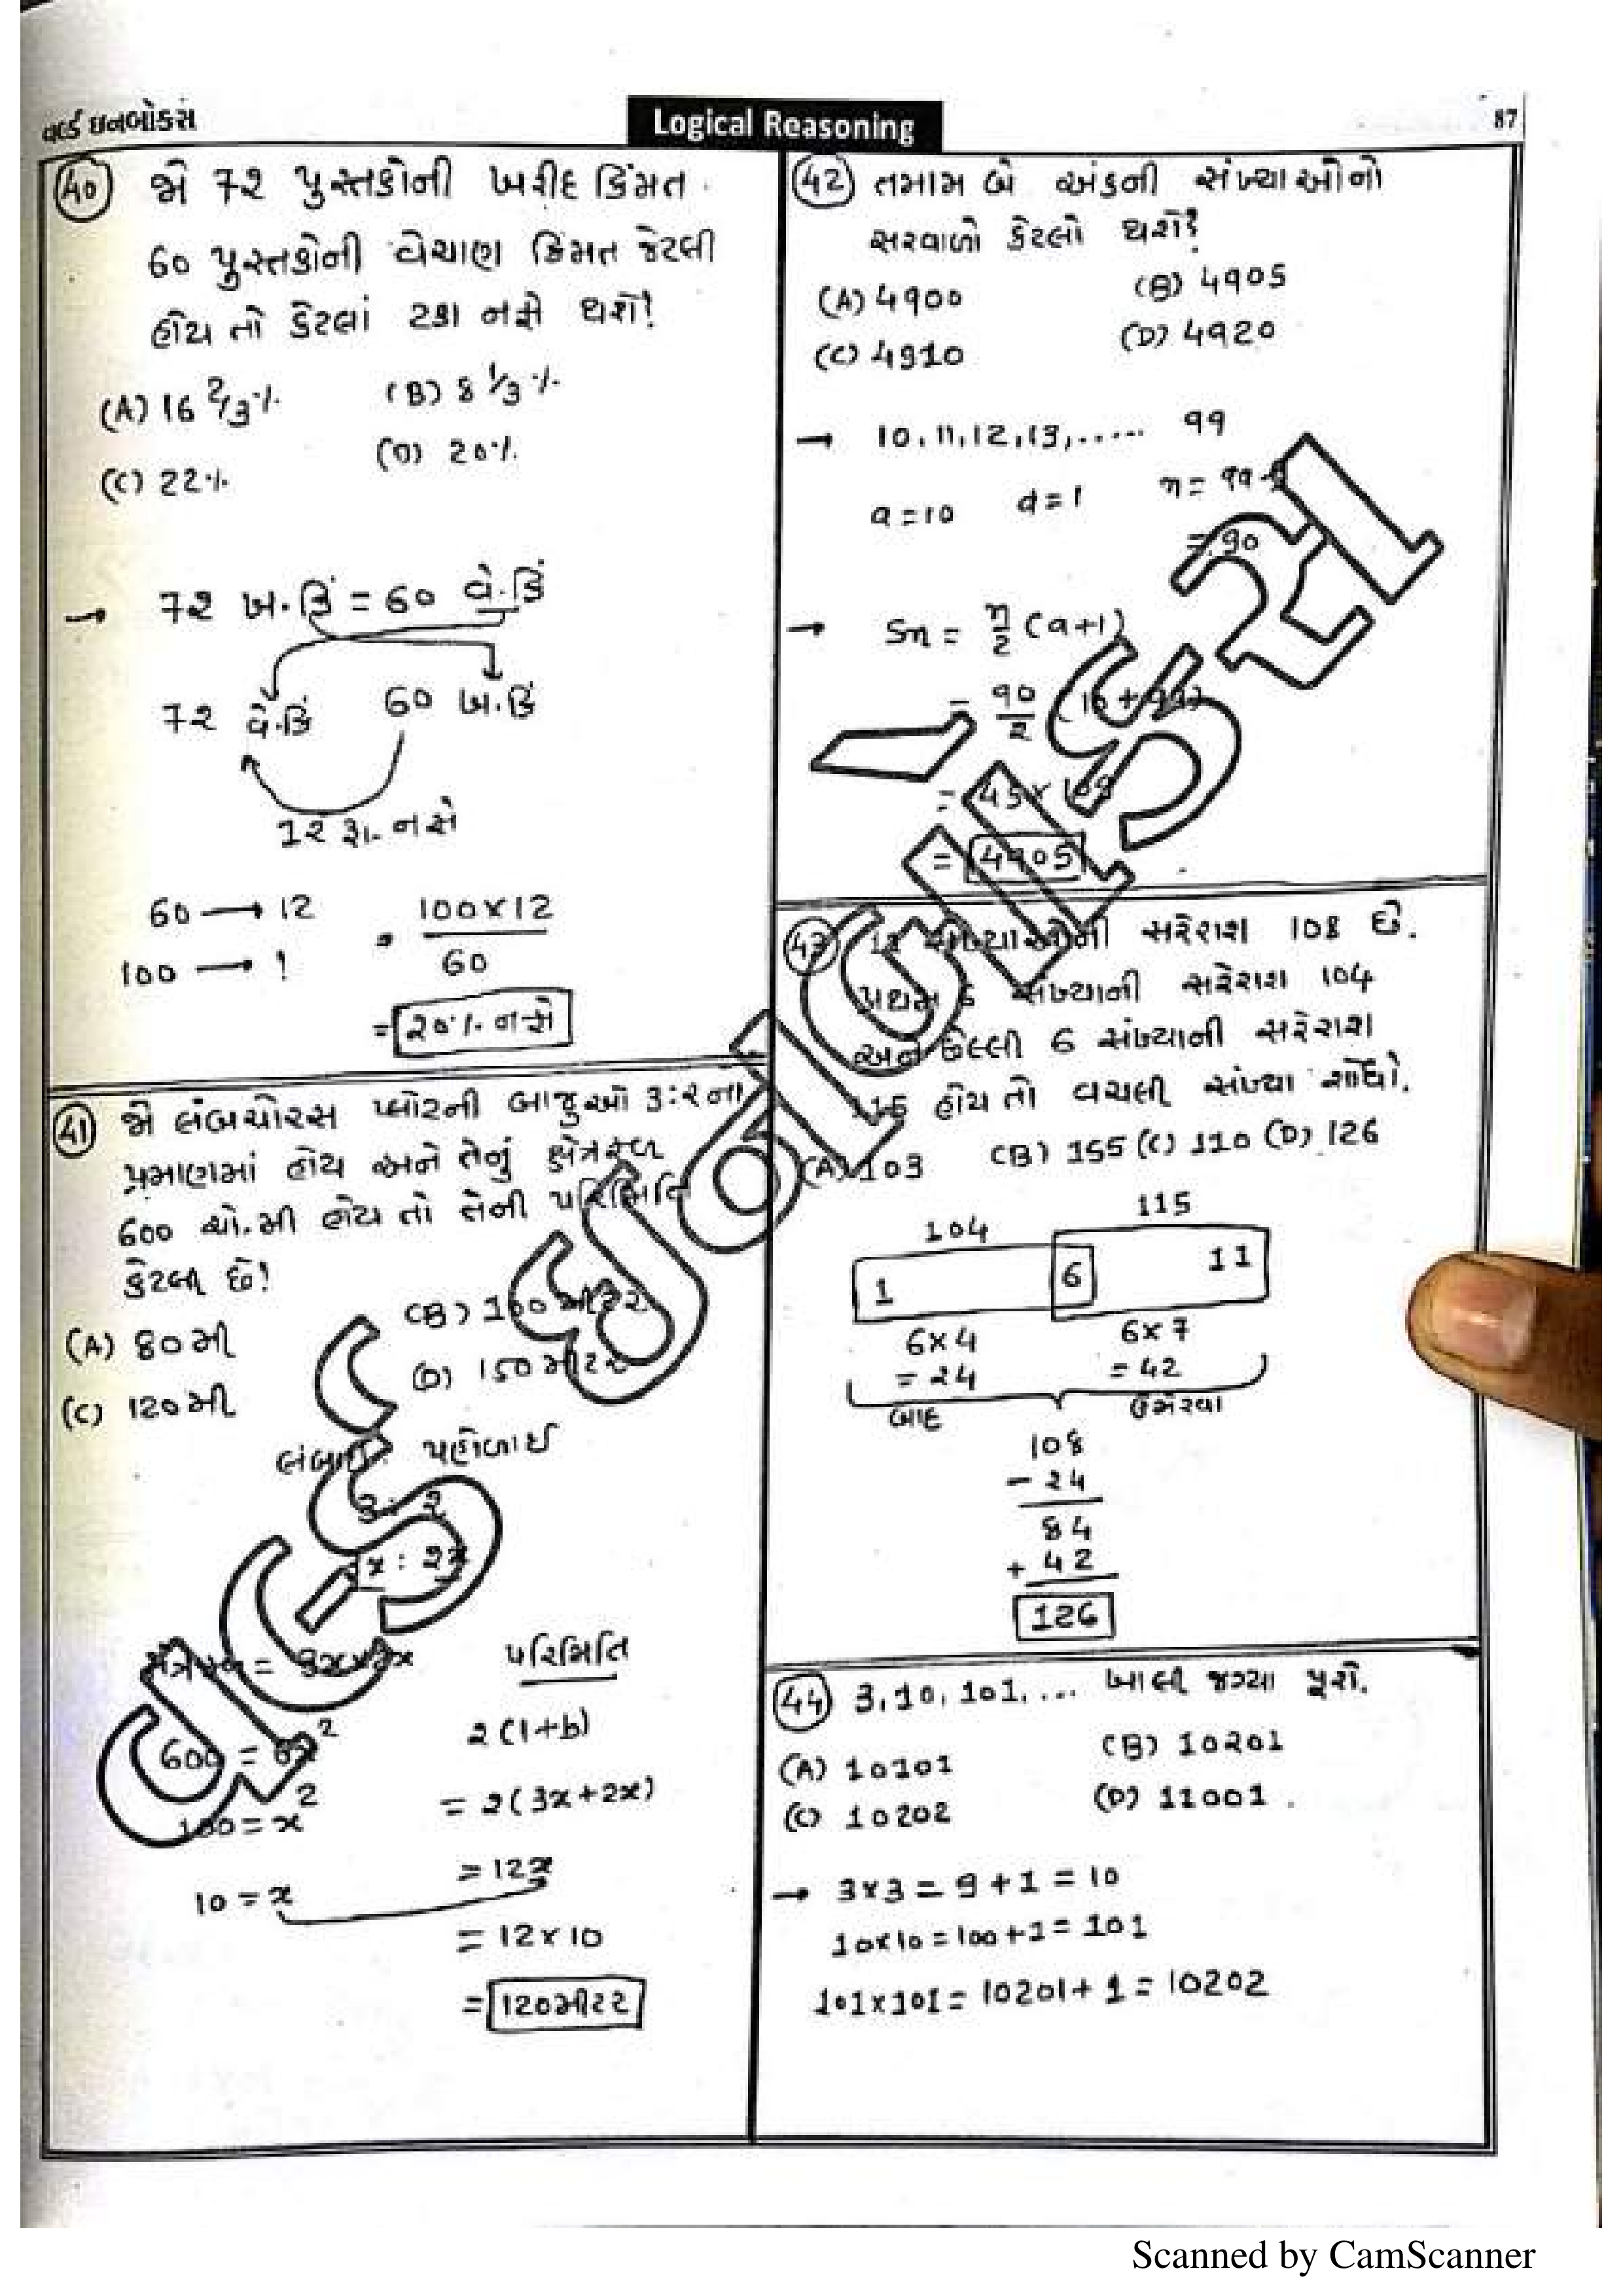 વર્લ્ડ ઇનબોક્સ
Logical Reasoning
87
(40) જો 72 પુસ્તકોની ખરીદ કિંમત
60 પુસ્તકોની વેચાણ કિંમત જેટલી
હોય તો કેટલાં ટકા નફો થશે?
(A) 16 2/3% (B) 8 1/3%
(C) 22% (D) 20%
→ 72 ખ.કિં = 60 વે.કિં
72 વે.કિં 60 ખ.કિં
12 રૂા. નફો
60 → 12
100 → ?
= 100×12 / 60
= 20% નફો
(41) જો લંબચોરસ પ્લોટની બાજુઓ 3:2ના
પ્રમાણમાં હોય અને તેનું ક્ષેત્રફળ
600 ચો.મી હોય તો તેની પરિમિતિ
કેટલી છે?
(A) 80મી (B) 100મીટર
(C) 120મી (D) 150મીટર
લંબાઈ : પહોળાઈ
3 : 2
3x : 2x
ક્ષેત્રફળ = 3x×2x
600 = 6x²
100 = x²
10 = x
પરિમિતિ
2(l+b)
= 2(3x+2x)
= 12x
= 12×10
= 120મીટર
(42) તમામ બે અંકની સંખ્યાઓનો
સરવાળો કેટલો થશે?
(A) 4900 (B) 4905
(C) 4910 (D) 4920
→ 10, 11, 12, 13, ..... 99
a = 10 d = 1 n = 99-9
= 90
→ Sn = n/2 (a+l)
= 90/2 (10+99)
= 45×109
= 4905
(43) 11 સંખ્યાઓની સરેરાશ 108 છે.
પ્રથમ 6 સંખ્યાની સરેરાશ 104
અને છેલ્લી 6 સંખ્યાની સરેરાશ
115 હોય તો વચલી સંખ્યા શોધો.
(A) 103 (B) 155 (C) 110 (D) 126
104 115
1 6 11
6×4 6×7
= 24 = 42
બાદ ઉમેરવા
108
- 24
84
+ 42
126
(44) 3, 10, 101, ... ખાલી જગ્યા પૂરો.
(A) 10101 (B) 10201
(C) 10202 (D) 11001
→ 3×3 = 9+1 = 10
10×10 = 100+1 = 101
101×101 = 10201+1 = 10202
Scanned by CamScanner